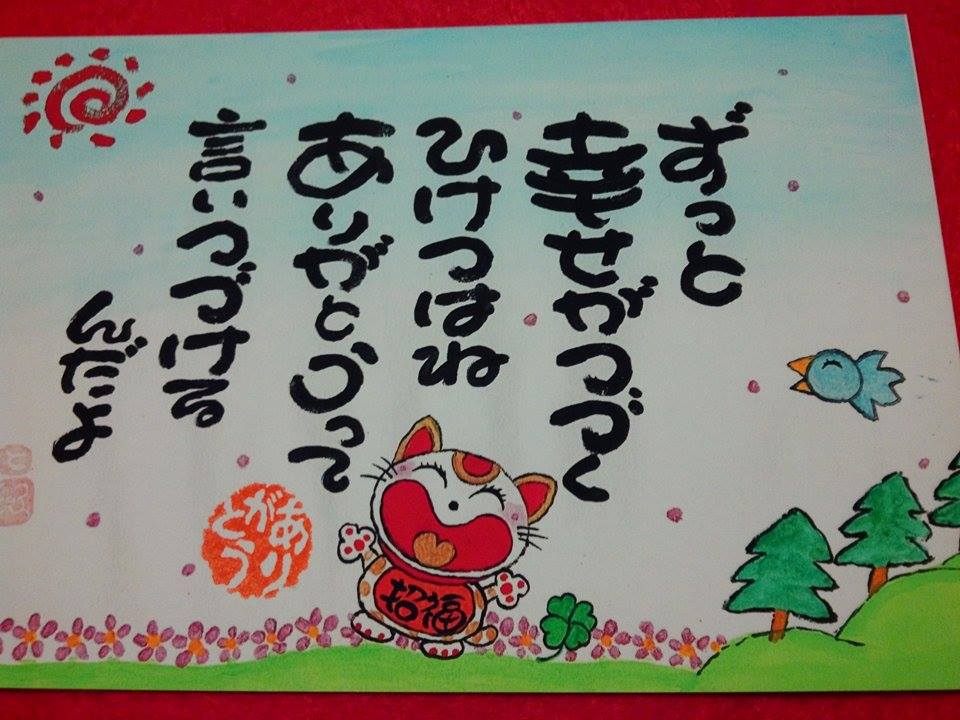 ずっと
幸せがつづく
ひけつはね
ありがとうって
言いつづける
んだよ
ありがとう
招福